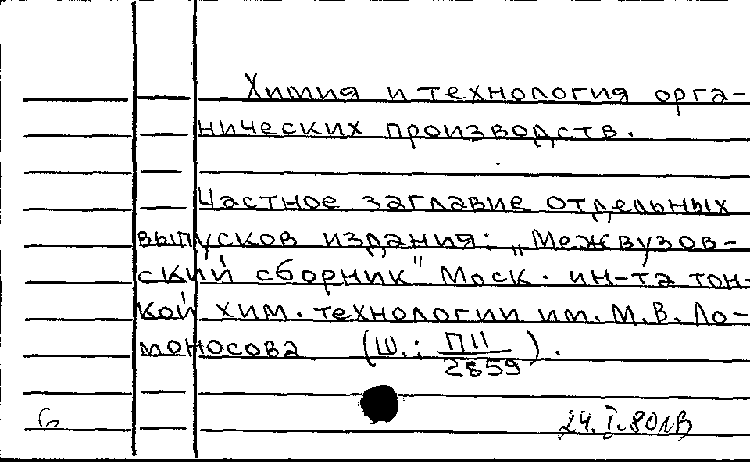 Химия и технология орга-
нических производств.
Частное заглавие отдельных
выпусков издания: „Межвузов-
ский сборник" Моск. ин-та тон-
кой хим. технологии им. М.В. Ло-
моносова (Ш.: П11/2859).
б 24.I.80